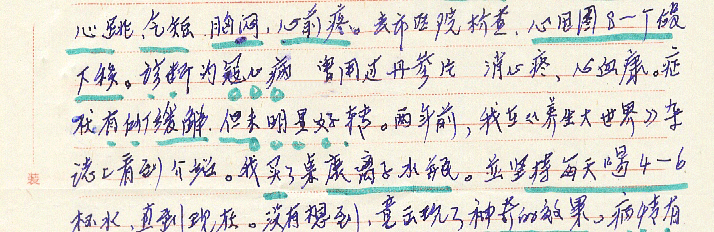 心跳、气短、胸闷，心前疼。去市医院检查，心电图8一个馒
下移。诊断为冠心病 曾用过丹参片 消心疼、心血康。症
状有所缓解，但未明显好转。两年前，我在《养生大世界》杂
志上看到介绍。我买了桌康离子水瓶。并坚持每天喝4-6
杯水，直到现在。没有想到，竟出现了神奇的效果。病情有
装